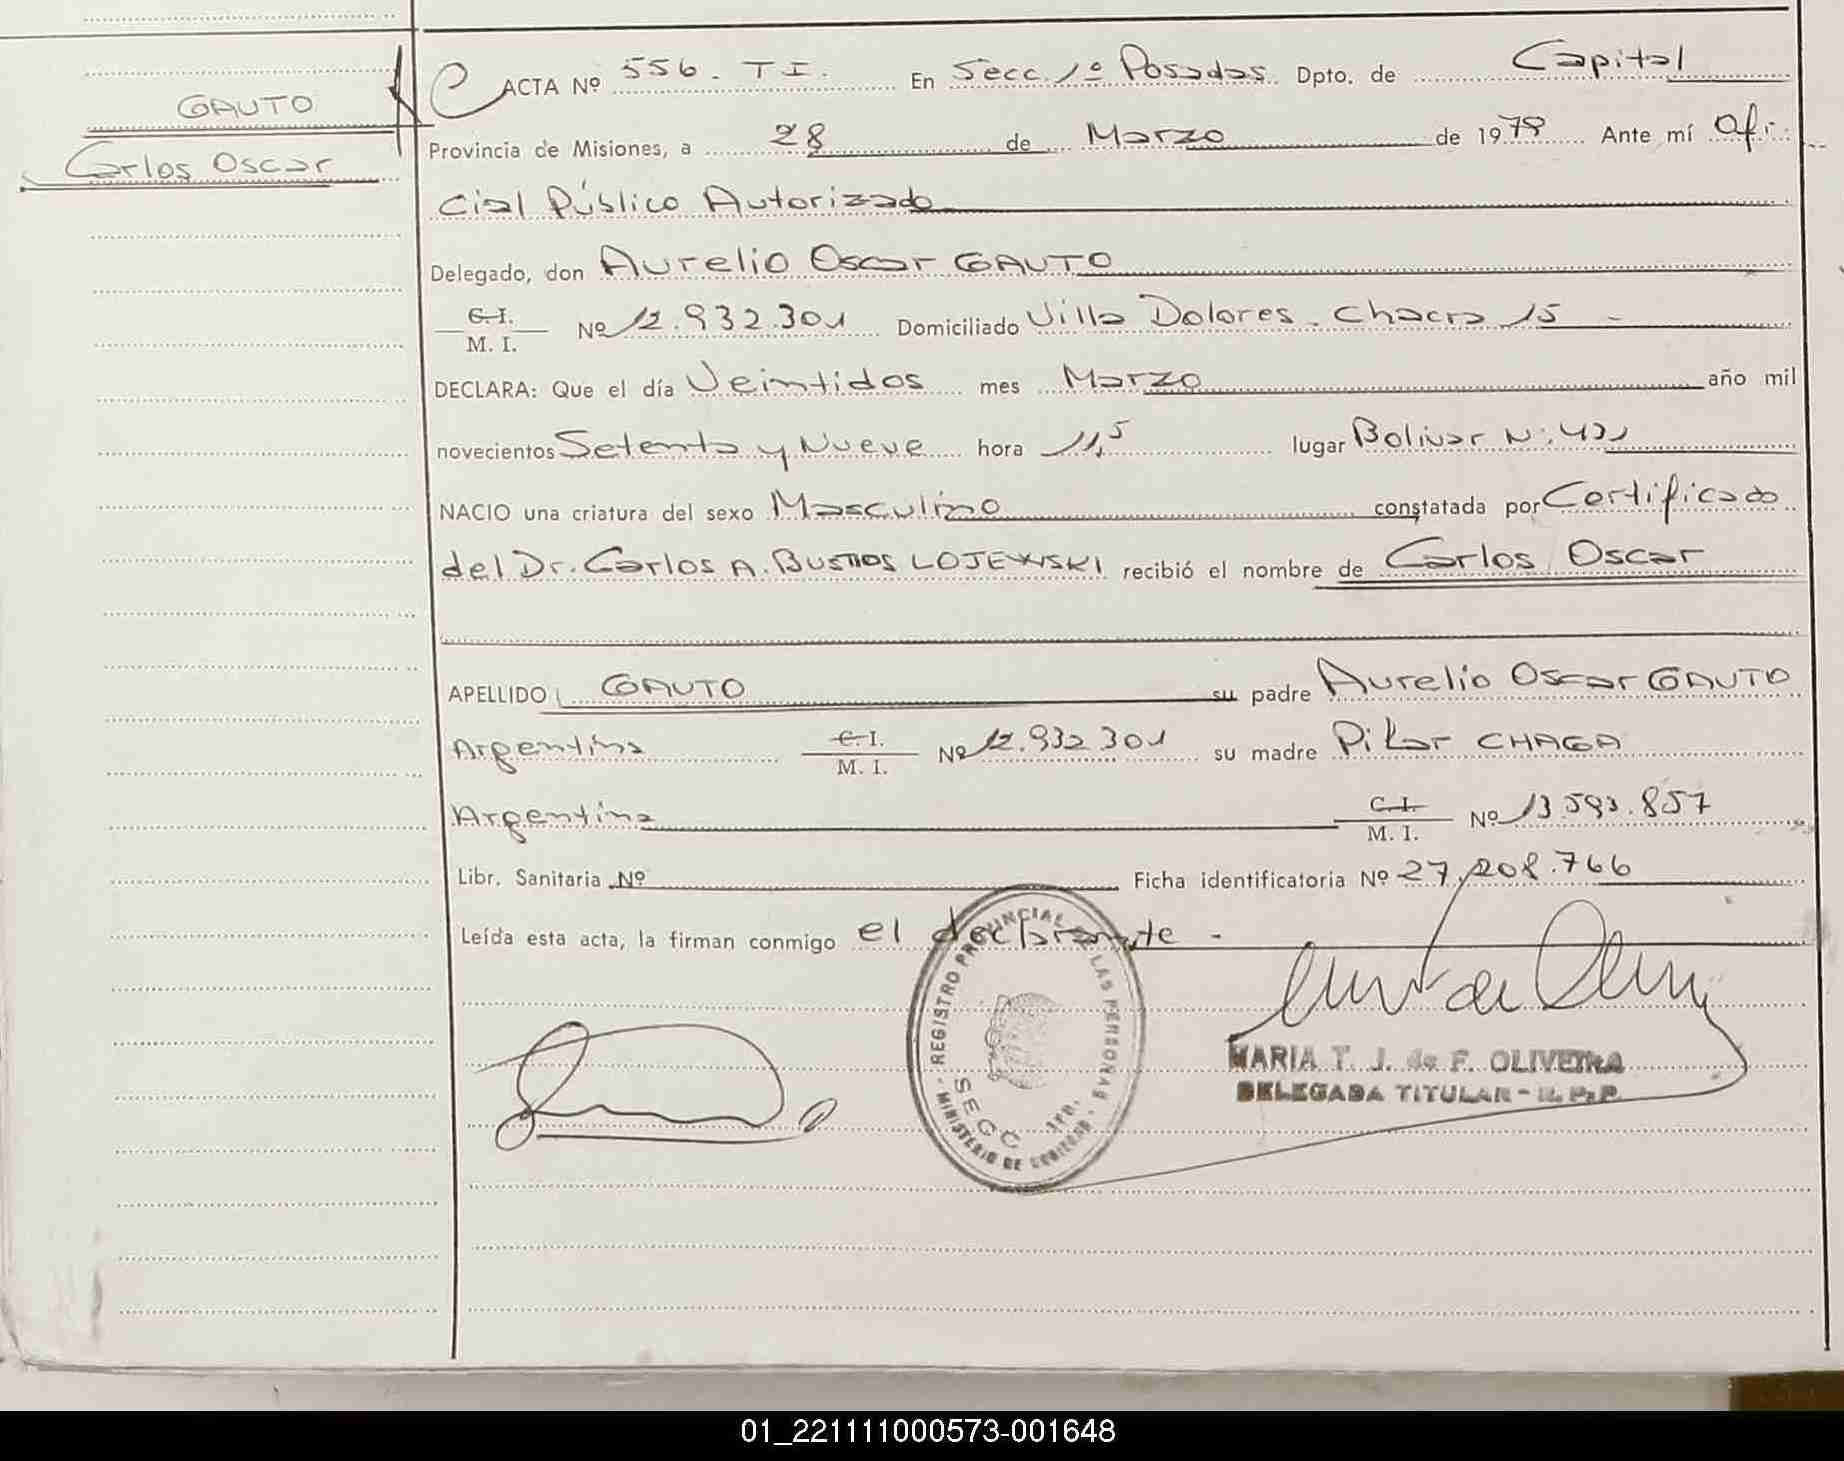 GAUTO
Carlos Oscar
ACTA Nº 556. T I. En Secc. 1º Posadas Dpto. de Capital
Provincia de Misiones, a 28 de Marzo de 1979 Ante mí Ofi-
cial Público Autorizado
Delegado, don Aurelio Oscar GAUTO
C.I.
M. I. Nº 12.932.301 Domiciliado Villa Dolores. Chacra 15 -
DECLARA: Que el día Veintidos mes Marzo año mil
novecientos Setenta y Nueve hora 11,5 lugar Bolivar N:431
NACIO una criatura del sexo Masculino constatada por Certificado
del Dr. Carlos A. BUSTIOS LOJEWSKI recibió el nombre de Carlos Oscar
APELLIDO GAUTO su padre Aurelio Oscar GAUTO
Argentina C.I.
M. I. Nº 12.932 301 su madre Pilar CHAGA
Argentina C.I.
M. I. Nº 13.593.857
Libr. Sanitaria Nº Ficha identificatoria Nº 27.208.766
Leída esta acta, la firman conmigo el declarante -
REGISTRO PROVINCIAL DE LAS PERSONAS
SECC 1RA.
MINISTERIO DE GOBIERNO
MARIA T. J. de F. OLIVEIRA
DELEGADA TITULAR - R. P. P.
01_221111000573-001648